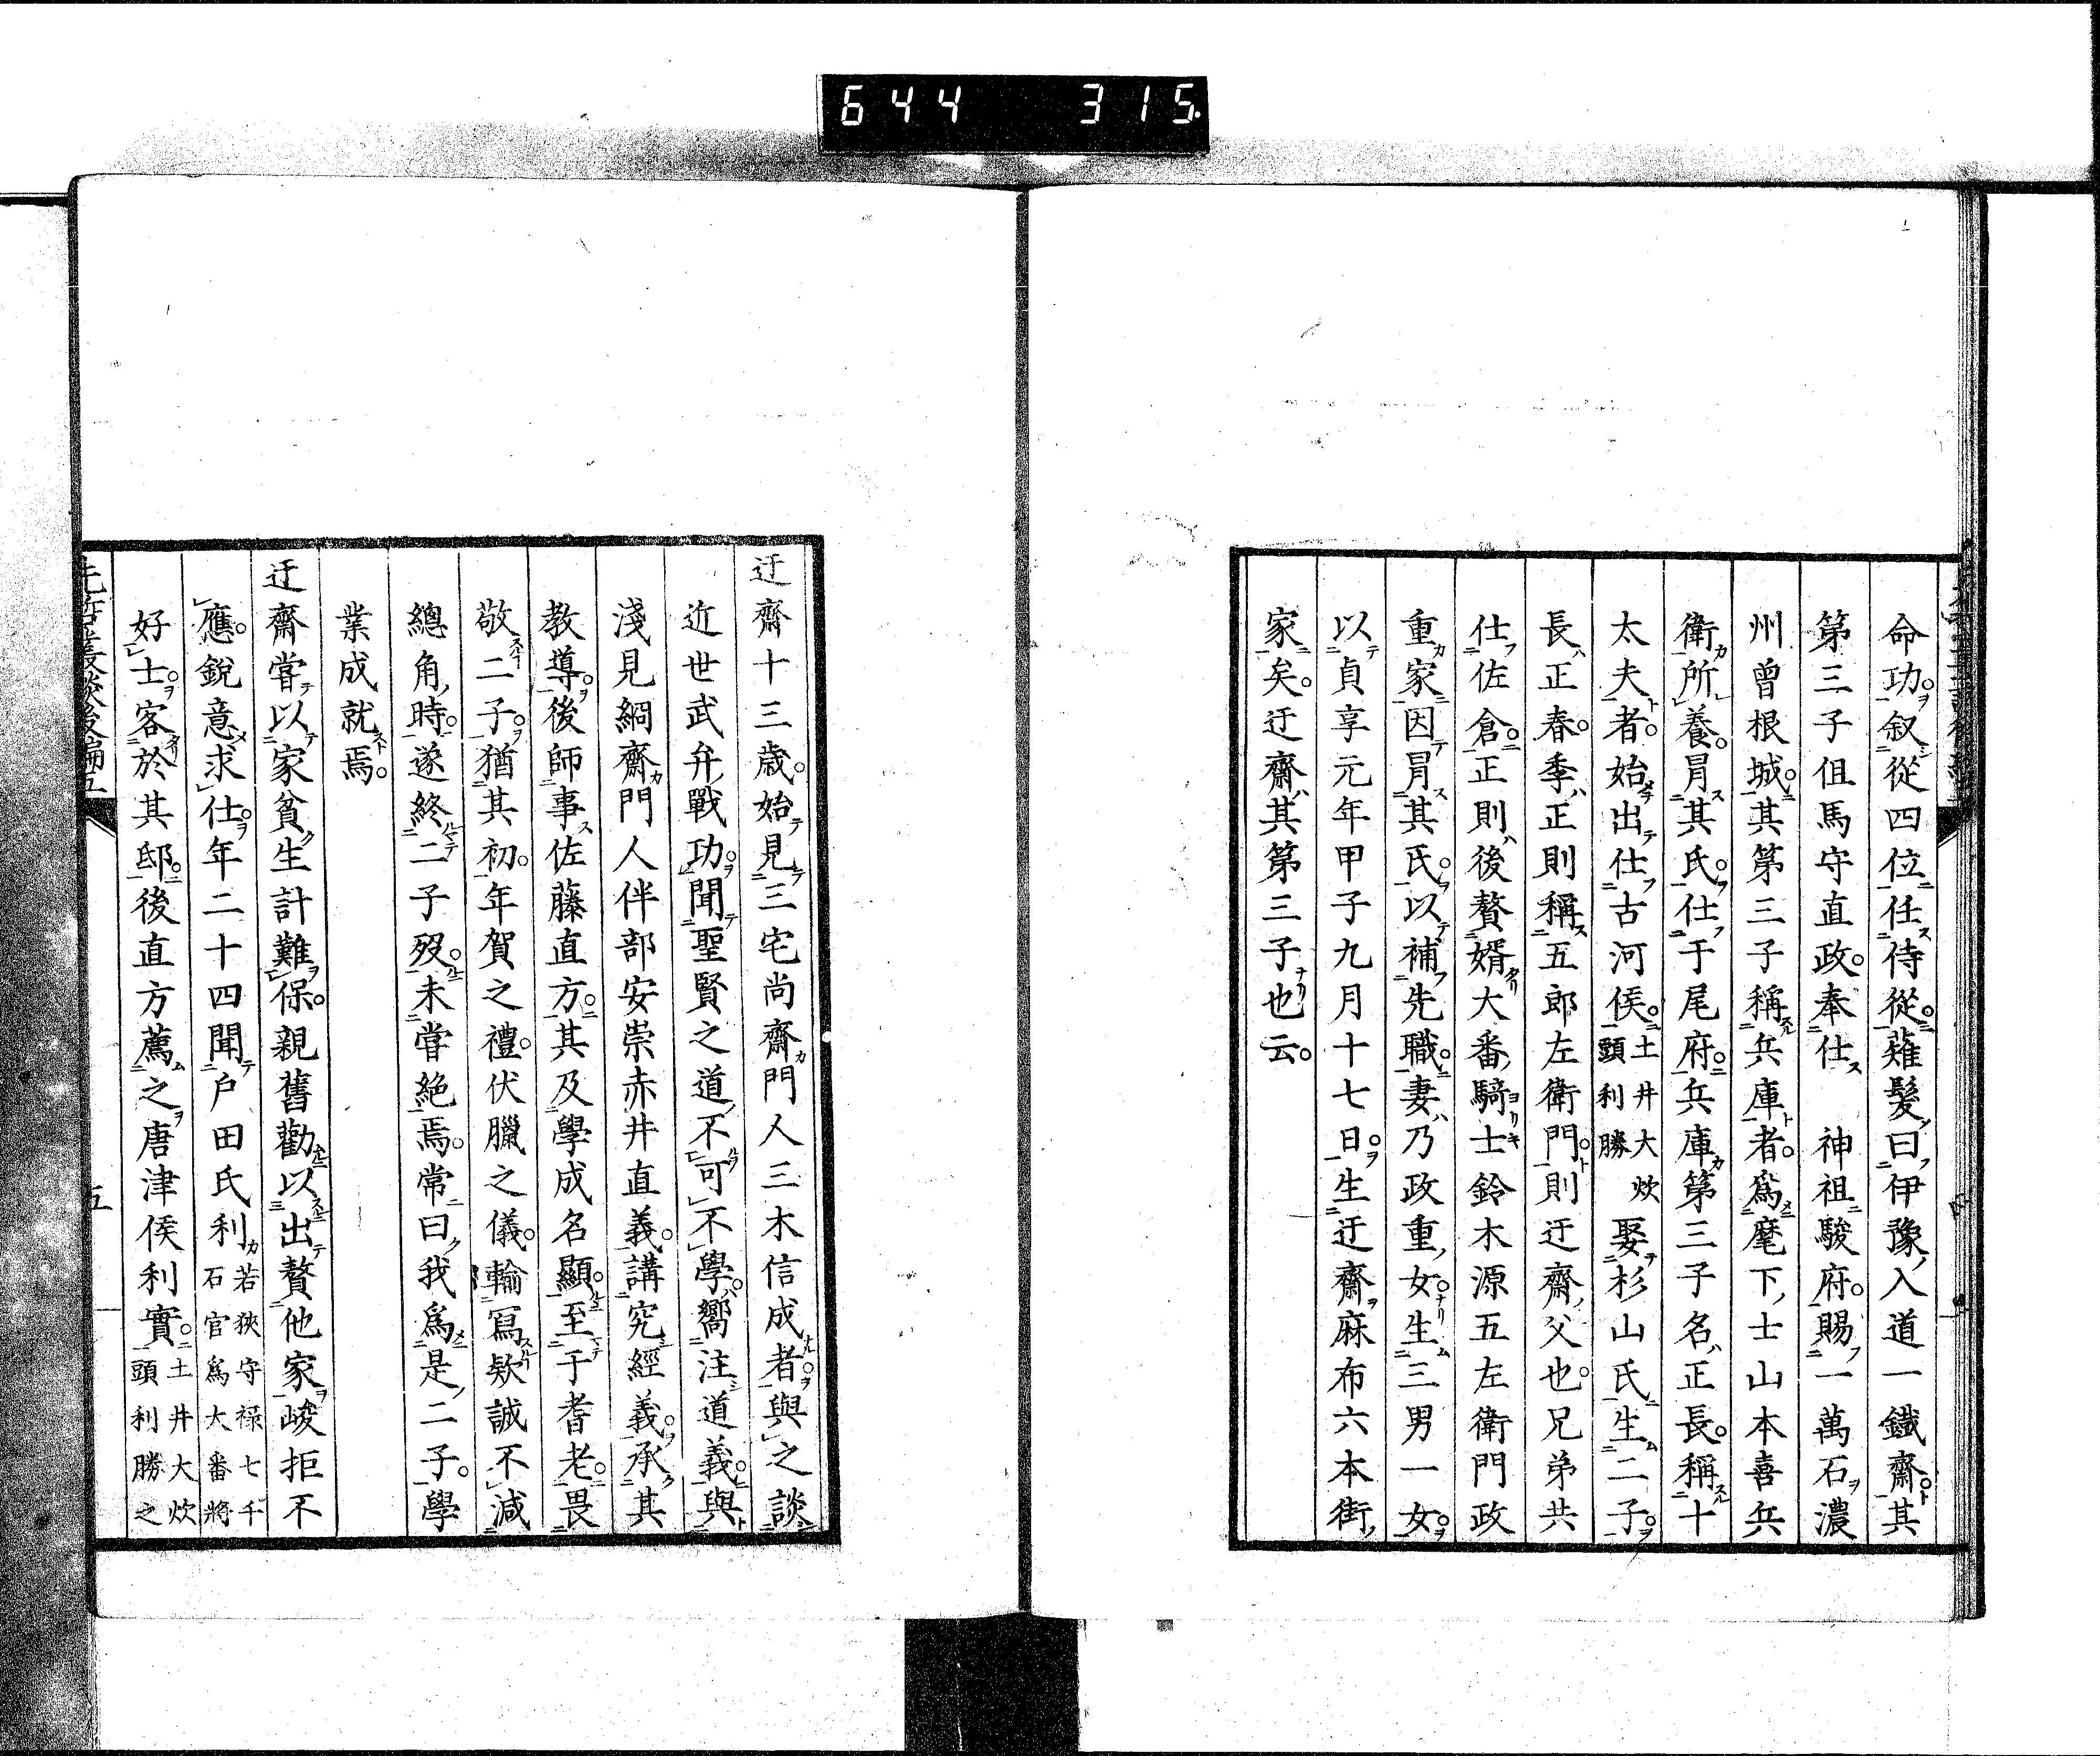 644 315
命功。叙從四位任侍從。薙髮曰伊豫入道一鐵齋。其
第三子但馬守直政。奉仕 神祖駿府。賜一萬石濃
州曾根城。其第三子稱兵庫者。爲麾下士山本喜兵
衛所養。冐其氏。仕于尾府。兵庫第三子名正長。稱十
太夫者。始出仕古河侯。土井大炊頭利勝娶杉山氏生二子。
長正春。季正則稱五郎左衛門。則迂齋父也。兄弟共
仕佐倉。正則後贅婿大番騎士鈴木源五左衛門政
重家。因冐其氏。以補先職。妻乃政重女。生三男一女。
以貞享元年甲子九月十七日。生迂齋麻布六本街
家矣。迂齋其第三子也云。
迂齋十三歲。始見三宅尚齋門人三木信成者。與之談
近世武弁戰功。聞聖賢之道不可不學。嚮注道義。與
淺見絅齋門人伴部安崇赤井直義。講究經義。承其
教導。後師事佐藤直方。其及學成名顯。至于耆老。畏
敬二子。猶其初。年賀之禮。伏臘之儀。輸寫欵誠不減
總角時。遂終二子歿。未嘗絶焉。常曰我爲是二子。學
業成就焉。
迂齋嘗以家貧生計難保。親舊勸以出贅他家峻拒不
應。銳意求仕。年二十四聞戸田氏利若狹守祿七千石官爲大番將
好士。客於其邸。後直方薦之唐津侯利實。土井大炊頭利勝之
五